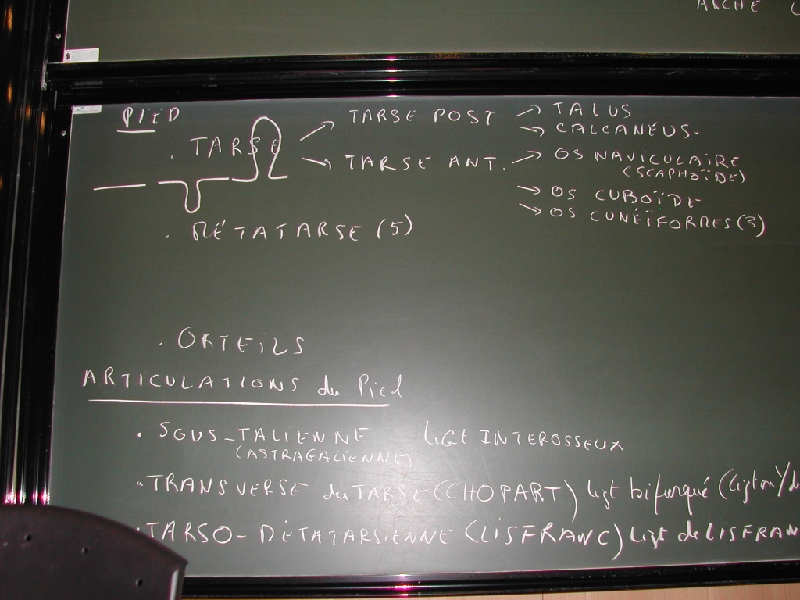 ARCHE
PIED
. TARSE → TARSE POST → TALUS
→ CALCANEUS.
→ TARSE ANT. → OS NAVICULAIRE
(SCAPHOÏDE)
→ OS CUBOÏDE
→ OS CUNÉÏFORMES (3)
. MÉTATARSE (5)
. ORTEILS
ARTICULATIONS du Pied
. SOUS-TALIENNE ligt INTEROSSEUX
(ASTRAGALIENNE)
. TRANSVERSE du TARSE (CHOPART) ligt bifurqué (ligt en Y
. TARSO-MÉTATARSIENNE (LISFRANC) ligt de LISFRAN